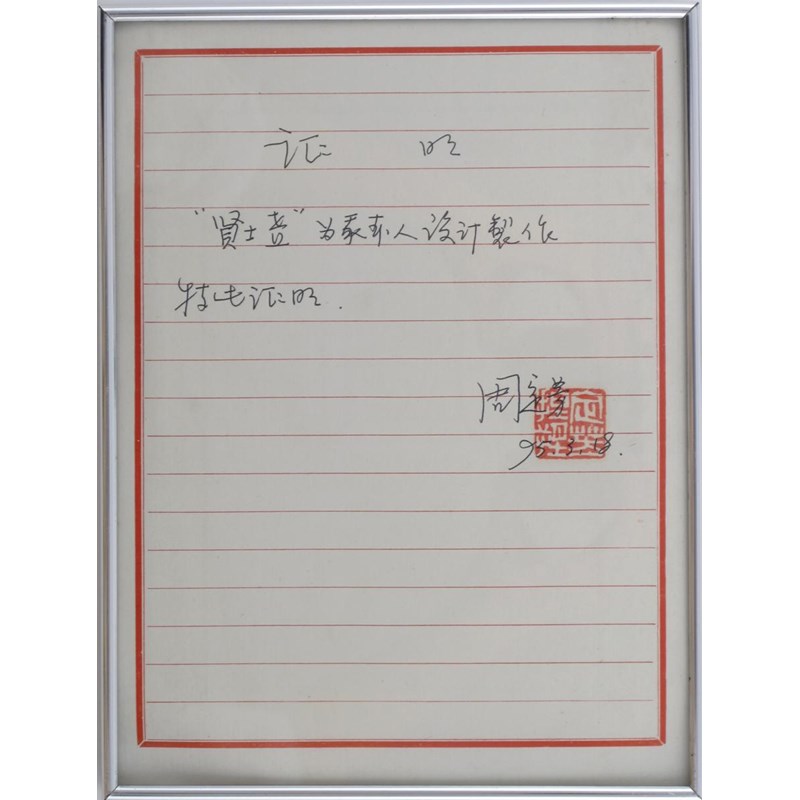 证 明
“贤士壶”为我本人设计製作
特此证明.
周定芳
95.3.18.
定芳